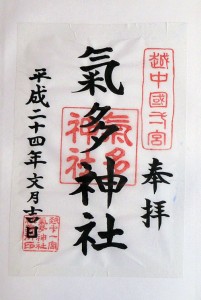 越中國弌宮
奉拝
氣多神社
氣多
神社
平成二十四年文月吉日